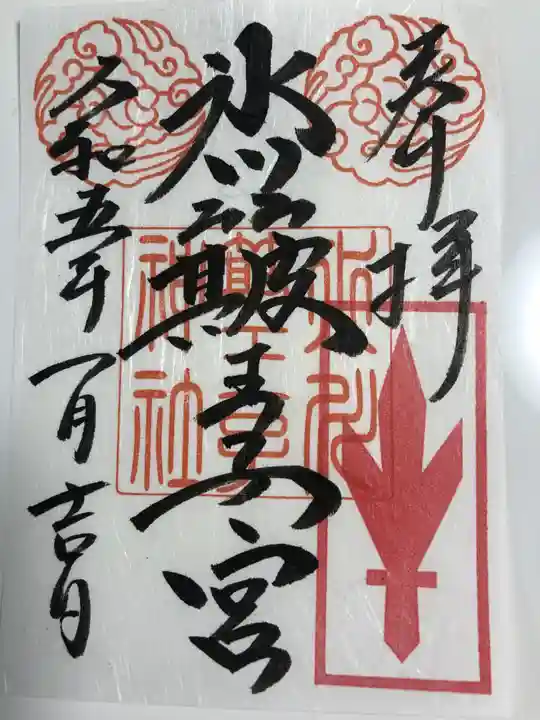 奉拝
氷川簸王子宮
令和五年一月吉日
氷川
神社